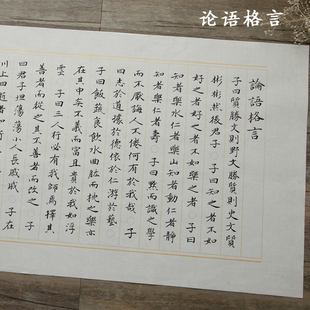 论语格言
論語格言
子曰質勝文則野文勝質則史文質
彬彬然後君子 子曰知之者不如
好之者好之者不如樂之者 子曰
知者樂水仁者樂山知者動仁者靜
知者樂仁者壽 子曰默而識之學
而不厭誨人不倦何有於我哉 子
曰志於道據於德依於仁游於藝
子曰飯蔬食飲水曲肱而枕之樂亦
在其中矣不義而富且貴於我如浮
雲 子曰三人行必有我師焉擇其
善者而從之其不善者而改之 子
曰君子坦蕩蕩小人長戚戚 子在
川上曰逝者如